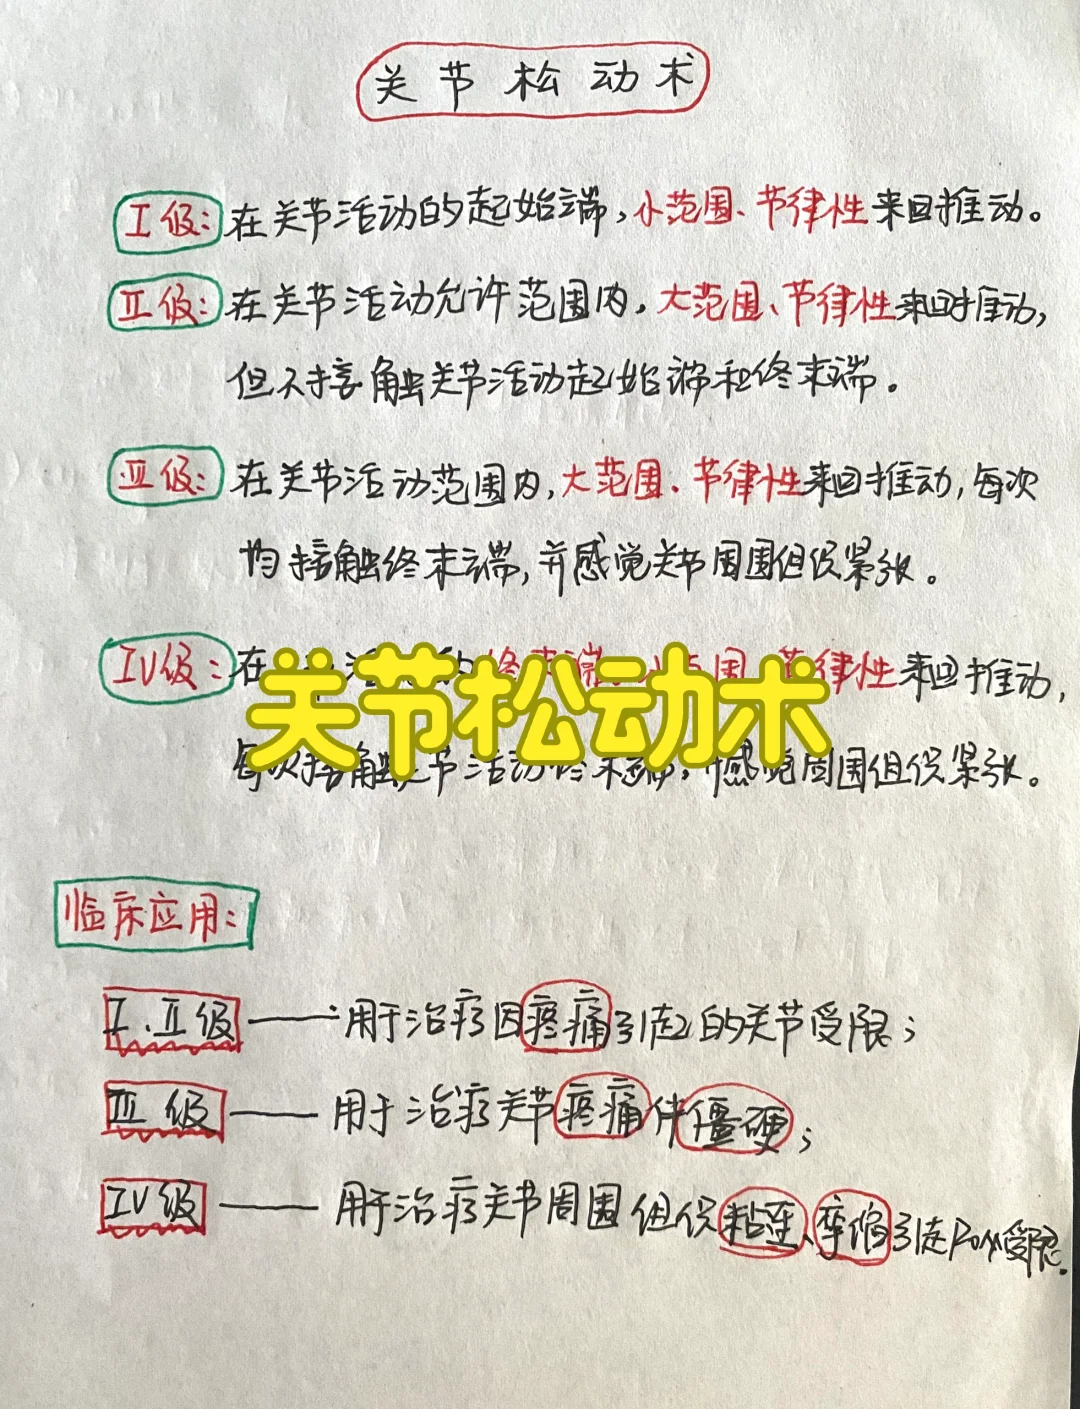 关节松动术
I级：在关节活动的起始端，小范围、节律性来回推动。
II级：在关节活动允许范围内，大范围、节律性来回推动，
但不接触关节活动起始端和终末端。
III级：在关节活动范围内，大范围、节律性来回推动，每次
均接触终末端，并感觉关节周围组织紧张。
IV级：在 活 终末端 小范围 节律性来回推动，
关节松动术
每次接触关节活动终末端，并感觉周围组织紧张。
临床应用：
I、II级——用于治疗因疼痛引起的关节受限；
III级——用于治疗关节疼痛伴僵硬；
IV级——用于治疗关节周围组织粘连、挛缩引起Rom受限.